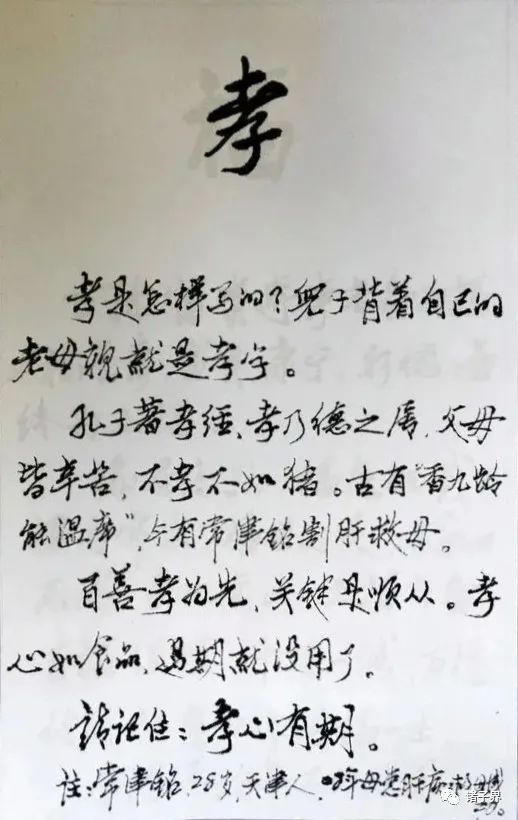 孝
孝是怎样写的？兒子背着自己的
老母親就是孝字。
孔子著孝经、孝乃德之属，父毋
皆辛苦，不孝不如猪。古有“香九龄
能温席”，今有常津铭割肝救母。
百善孝为先，关键是顺从。孝
心如食品，过期就没用了。
請记住：孝心有期。
註：常津铭28岁，天津人，年母患肝病
诸子界